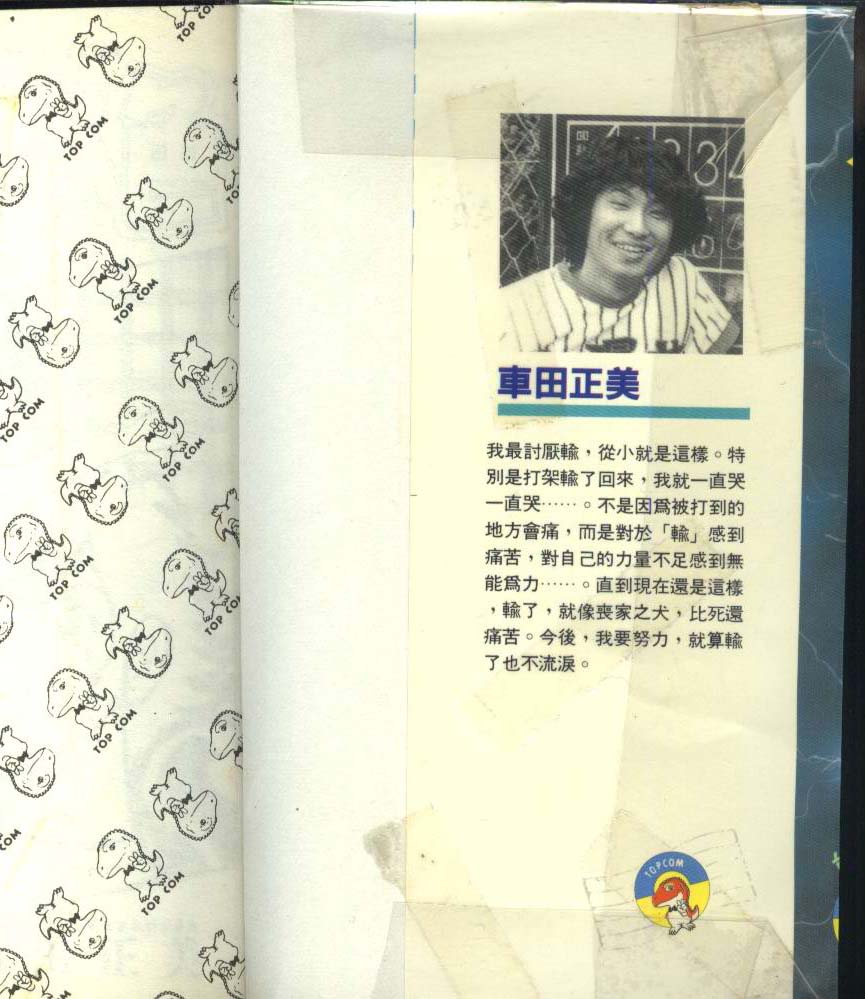 TOP COM
TOP COM
TOP COM
TOP COM
TOP COM
TOP COM
TOP COM
TOP COM
TOP COM
COM
TOP COM
1 2 3 4
車田正美
我最討厭輸，從小就是這樣。特
別是打架輸了回來，我就一直哭
一直哭……。不是因爲被打到的
地方會痛，而是對於「輸」感到
痛苦，對自己的力量不足感到無
能爲力……。直到現在還是這樣
，輸了，就像喪家之犬，比死還
痛苦。今後，我要努力，就算輸
了也不流淚。
TOPCOM